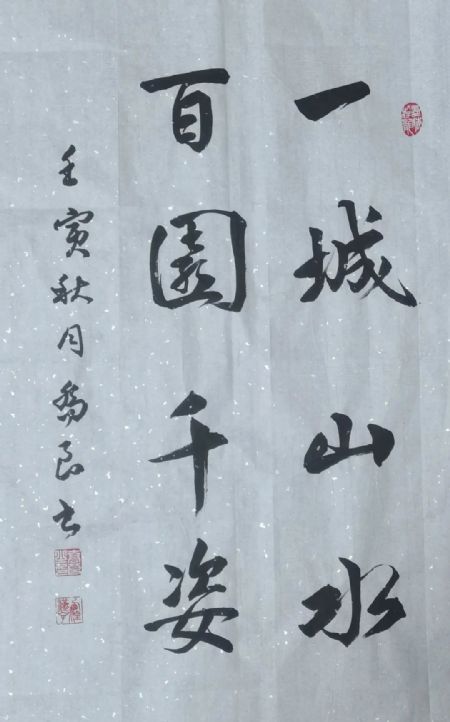 一城山水
百園千姿
壬寅秋月喬良书